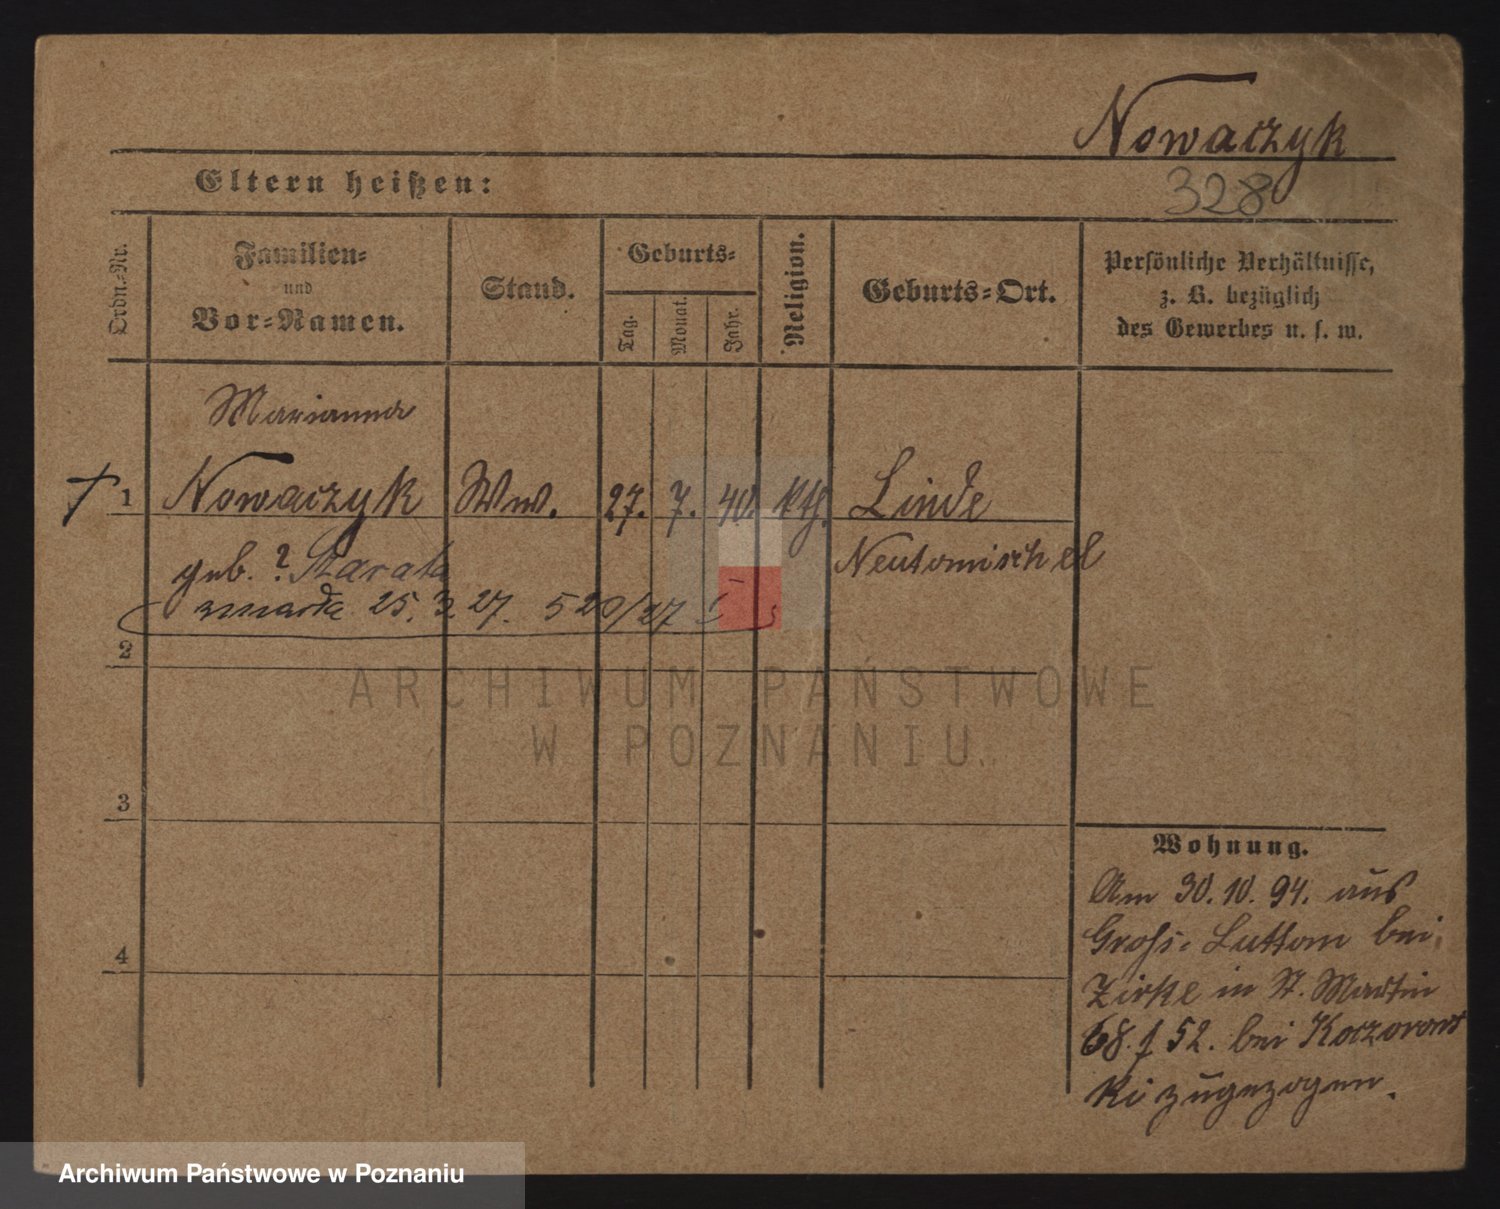 Nowaczyk
328
Eltern heißen:
Ordn.-Nr.
Familien-
und
Vor-Namen.
Stand.
Geburts-
Tag.
Monat.
Jahr.
Religion.
Geburts-Ort.
Persönliche Verhältnisse,
z. B. bezüglich
des Gewerbes u. s. w.
Marianna
† 1 Nowaczyk Ww. 27. 7. 40. kth. Linde
geb. ? Neutomischel
zmarła 25. 3. 27. 520/27 I
2
3
4
ARCHIWUM PAŃSTWOWE
W POZNANIU
Wohnung.
Am 30. 10. 94. aus
Groß-Luttom bei
Zirke in St. Martin
68. 52. bei Koczorows
ki zugezogen.
Archiwum Państwowe w Poznaniu